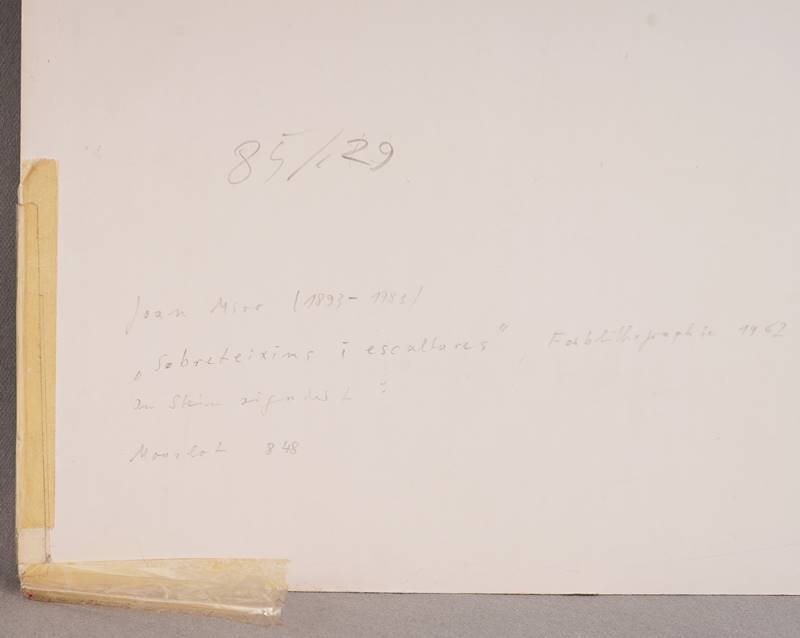 85/129
Joan Miro (1893-1983)
„Sobreteixims i escultures“, Farblithographie 1962
im Stein signiert
Mourlot 848